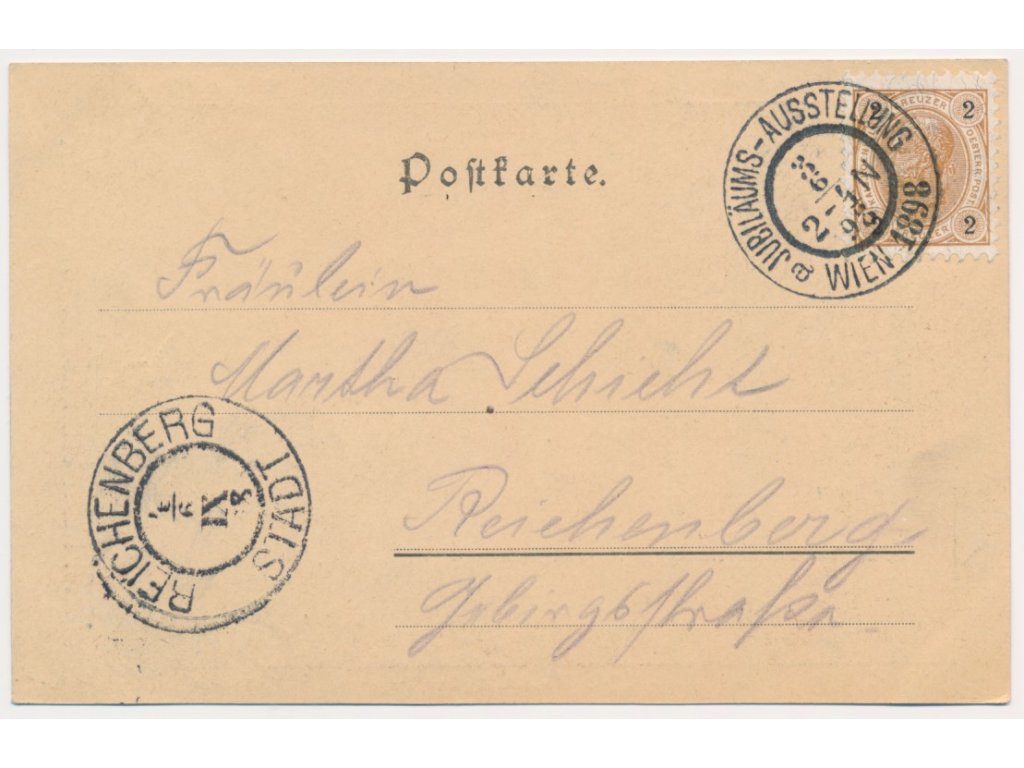 Postkarte.
JUBILÄUMS-AUSSTELLUNG
WIEN 1898
KREUZER
OESTERR. POST
2
2
2
Fräulein
Martha Schicht
Reichenberg
Gebirgsstraße
REICHENBERG STADT
IX